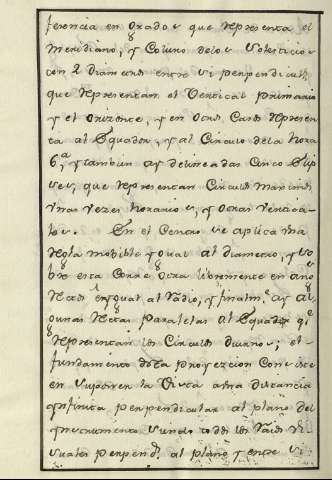 ferencia en Grados que representa el
Meridiano, y Coluro de los Solsticios
con 2 Diametros entre si perpendicul.s
que representan el Vertical primario
y el Orizonte, y en otros Casos represen
ta al Equador, y al Circulo de la hora
6.a, y tambien ay delineadas Cinco Elip
ses, que representan Circulos maximos
unas vezes horarios, y otras verticales.
En el Centro se aplica una
Regla mobible ygual al diametro, y so
bre esta Corre otra libremente en ang
Recto ygual al Radio, y finalm.e ay al
gunas Rectas Paralelas al Equador q.e
representan los Circulos diurnos; el
fundamento de la proyeccion Consiste
en suponer la Vista a una distancia
ynfinita perpendicular al plano del
ynstrumento siendo todos los Raios vi
suales perpend.s al plano y entre si